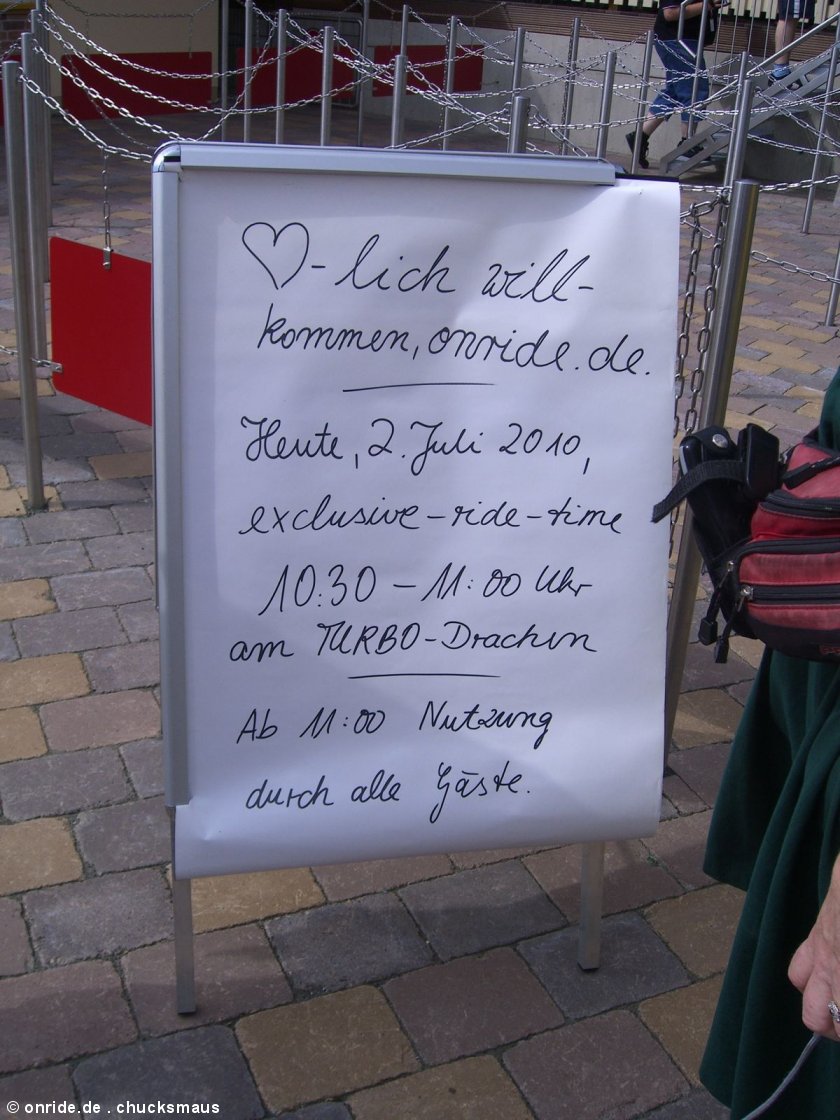 ♡-lich will-
kommen, onride.de.
Heute, 2. Juli 2010,
exclusive-ride-time
10:30 – 11:00 Uhr
am TURBO-Drachen
Ab 11:00 Nutzung
durch alle Gäste.
© onride.de . chucksmaus